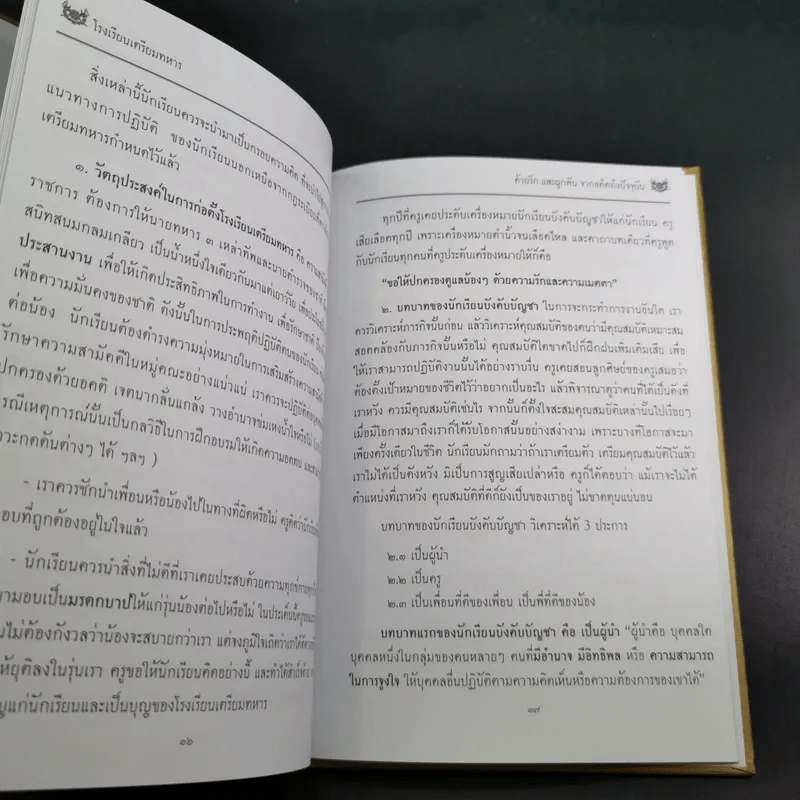 โรงเรียนเตรียมทหาร
สิ่งเหล่านี้นักเรียนควรจะนำมาเป็นกรอบความคิด
แนวทางการปฏิบัติ ของนักเรียนนอกเหนือจากกฎระเบียบ
เตรียมทหารกำหนดไว้แล้ว
๑. วัตถุประสงค์ในการก่อตั้งโรงเรียนเตรียมทหาร คือ
ราชการ ต้องการให้นายทหาร ๓ เหล่าทัพและนายตำรวจ
สนิทสนมกลมเกลียว เป็นน้ำหนึ่งใจเดียวกันมาแต่เยาว์วัย
ประสานงาน เพื่อให้เกิดประสิทธิภาพในการทำงาน เพื่อรักษาชาติ
เพื่อความมั่นคงของชาติ ดังนั้นในการประพฤติปฏิบัติตนของนักเรียน
ต่อน้อง นักเรียนต้องดำรงความมุ่งหมายในการเสริมสร้างความ
รักษาความสามัคคีในหมู่คณะอย่างแน่วแน่ เราควรจะปฏิบัติ
ปกครองด้วยอคติ เจตนากลั่นแกล้ง วางอำนาจข่มเหงน้ำใจหรือไม่
กรณีเหตุการณ์นั้นเป็นกลวิธีในการฝึกอบรมให้เกิดความอดทน
วะกดดันต่างๆ ได้ ฯลฯ )
- เราควรชักนำเพื่อนหรือน้องไปในทางที่ผิดหรือไม่ ครูคิดว่านักเรียน
อบที่ถูกต้องอยู่ในใจแล้ว
- นักเรียนควรนำสิ่งที่ไม่ดีที่เราเคยประสบด้วยความทุกข์กาย
ามอบเป็นมรดกบาปให้แก่รุ่นน้องต่อไปหรือไม่ ในประเด็นนี้ครู
นไม่ต้องกังวลว่าน้องจะสบายกว่าเรา แต่จงภูมิใจเถิดว่าเราได้
ห้ยุติลงในรุ่นเรา ครูขอให้นักเรียนคิดอย่างนี้ และทำได้สำเร็จด้วย
ญแก่นักเรียนและเป็นบุญของโรงเรียนเตรียมทหาร
๑๖
ด้วยรัก และผูกพัน จากอดีตถึงปัจจุบัน
ทุกปีที่ครูเคยประดับเครื่องหมายนักเรียนบังคับบัญชาให้แก่นักเรียน ครู
เสียเลือดทุกปี เพราะเครื่องหมายตำนิ้วจนเลือดไหล และคาถาบทเดียวที่ครูพูด
กับนักเรียนทุกคนที่ครูประดับเครื่องหมายให้ก็คือ
“ขอให้ปกครองดูแลน้องๆ ด้วยความรักและความเมตตา”
๒. บทบาทของนักเรียนบังคับบัญชา ในการจะกระทำการงานอันใด เรา
ควรวิเคราะห์ภารกิจนั้นก่อน แล้ววิเคราะห์คุณสมบัติของตนว่ามีคุณสมบัติเหมาะสม
สอดคล้องกับภารกิจนั้นหรือไม่ คุณสมบัติใดขาดไปก็ฝึกฝนเพิ่มเติมเสีย เพื่อ
ให้เราสามารถปฏิบัติงานนั้นได้อย่างราบรื่น ครูเคยสอนลูกศิษย์ของครูเสมอว่า
ต้องตั้งเป้าหมายของชีวิตไว้ว่าอยากเป็นอะไร แล้วพิจารณาดูว่าคนที่ได้เป็นดังที่
เราหวัง ควรมีคุณสมบัติเช่นไร จากนั้นก็ตั้งใจสะสมคุณสมบัติเหล่านั้นไปเรื่อยๆ
เมื่อมีโอกาสมาถึงเราก็ได้รับโอกาสนั้นอย่างสง่างาม เพราะบางทีโอกาสจะมา
เพียงครั้งเดียวในชีวิต นักเรียนมักถามว่าถ้าเราเตรียมตัว เตรียมคุณสมบัติไว้แล้ว
เราไม่ได้เป็นดังหวัง มิเป็นการสูญเสียเปล่าหรือ ครูก็ได้ตอบว่า แม้เราจะไม่ได้
ตำแหน่งที่เราหวัง คุณสมบัติที่ดีก็ยังเป็นของเราอยู่ ไม่ขาดทุนแน่นอน
บทบาทของนักเรียนบังคับบัญชา วิเคราะห์ได้ 3 ประการ
๒.๑ เป็นผู้นำ
๒.๒ เป็นครู
๒.๓ เป็นเพื่อนที่ดีของเพื่อน เป็นพี่ที่ดีของน้อง
บทบาทแรกของนักเรียนบังคับบัญชา คือ เป็นผู้นำ “ผู้นำคือ บุคคลใด
บุคคลหนึ่งในกลุ่มของคนหลายๆ คนที่มีอำนาจ มีอิทธิพล หรือ ความสามารถ
ในการจูงใจ ให้บุคคลอื่นปฏิบัติตามความคิดเห็นหรือความต้องการของเขาได้”
๑๗